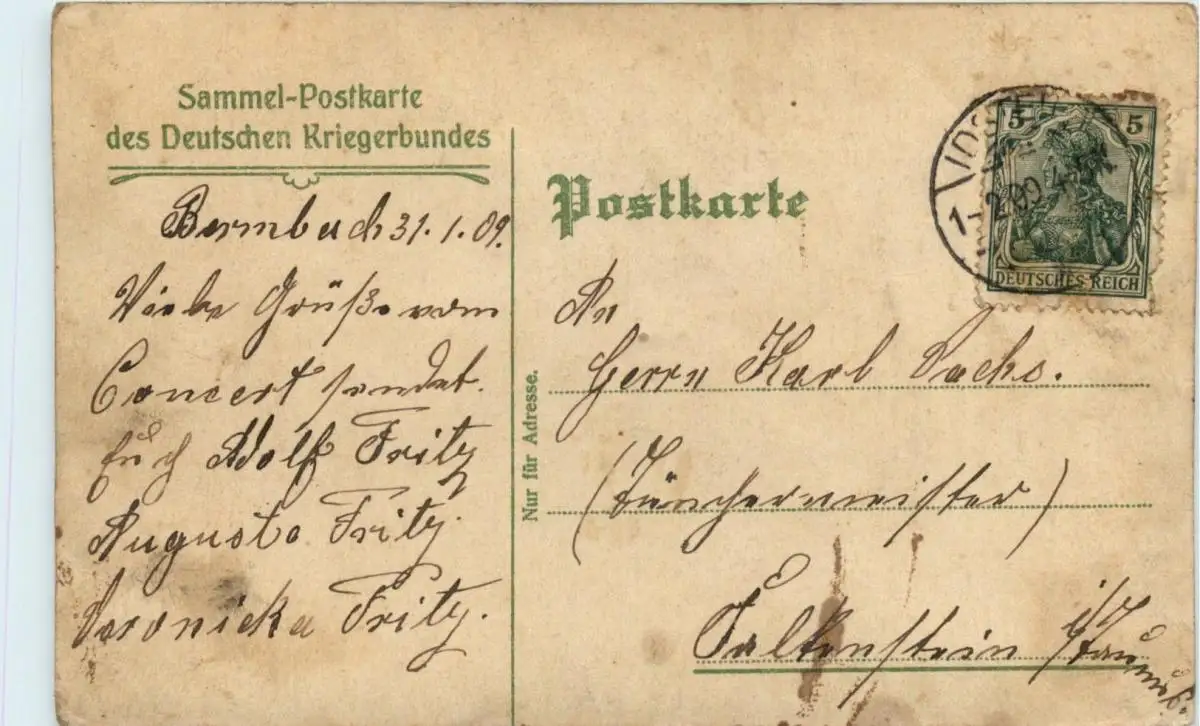 Sammel-Postkarte
des Deutschen Kriegerbundes
Bermbach 31.1.09.
Viele Grüße vom
Concert sendet.
Euch Adolf Fritz
Auguste Fritz.
Veronicka Fritz.
Nur für Adresse.
Postkarte
5 5
DEUTSCHES REICH
1. 2.09. 4-
An
Herrn Karl Sachs.
(Tünchermeister)
Falkenstein i/T
Taunus.